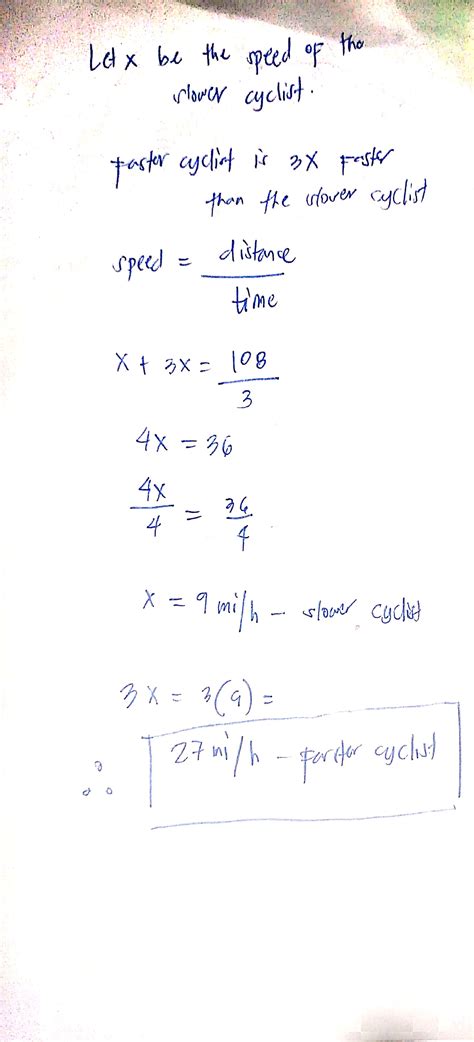 Let x be the speed of the
slower cyclist.
faster cyclist is 3x faster
than the slower cyclist
speed = distance
time
x + 3x = 108
3
4x = 36
4x = 36
4 4
x = 9 mi/h - slower cyclist
3x = 3(9) =
∴ 27 mi/h - faster cyclist